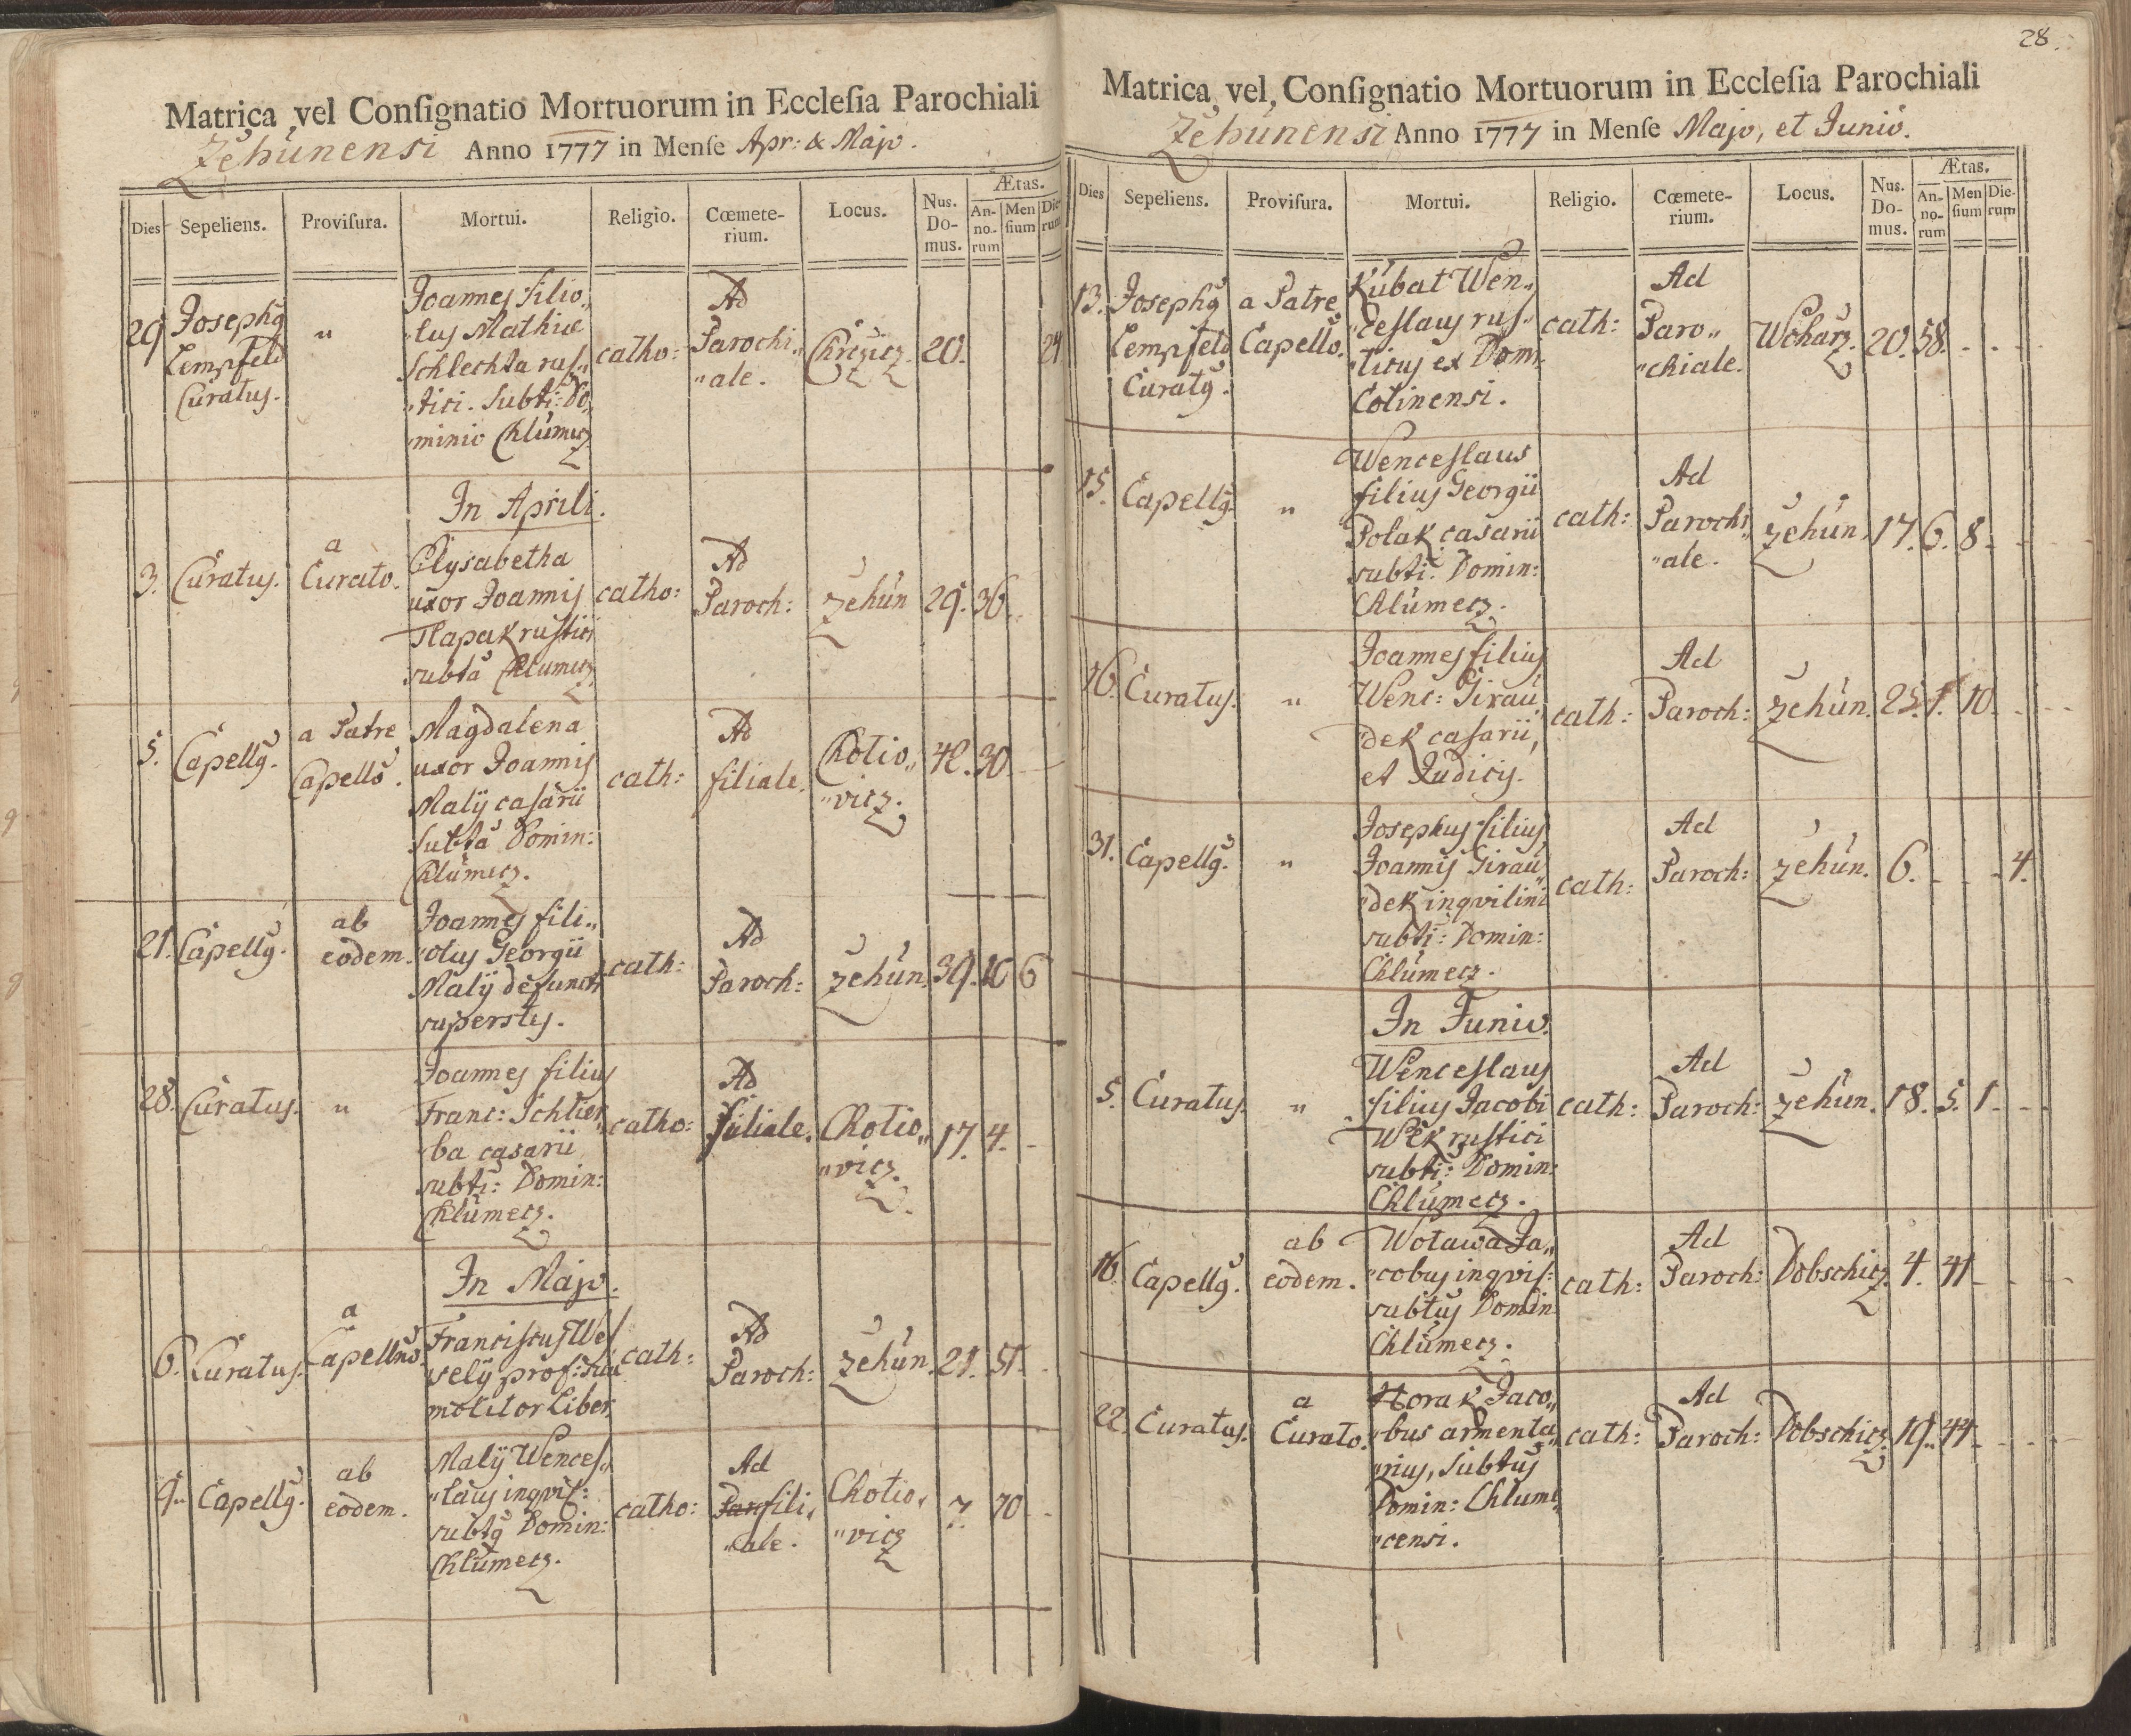 Matrica vel Conſignatio Mortuorum in Eccleſia Parochiali
Žehúnensi Anno 1777 in Menſe Apr: & Majo.
Dies
Sepeliens.
Proviſura.
Mortui.
Religio.
Cœmete-
rium.
Locus.
Nus.
Do-
mus.
Ætas.
An-
no-
rum
Men
ſium
Die-
rum
29
Josephg
Lempfeld
Curatus.
"
Joannes filio„
"lus Mathiæ
Schlechta rus„
"tici. Subti: Do„
"minio Chlumecz
catho:
Ad
Parochi„
"ale.
Chrczicz.
20.
24
In Aprili.
3.
Curatus.
a
Curato.
Elysabetha
uxor Joannis
Tlapak rustici
subta Chlumecz
catho:
Ad
Paroch:
Žehún
29.
36.
5.
Capellg.
a Patre
Capello.
Magdalena
uxor Joannis
Malÿ casarii
Subta Domin:
Chlumecz.
cath:
Ad
filiale.
Chotio„
"vicz.
42.
30
21.
Capellg.
ab
eodem.
Joannes fili„
"olus Georgii
Malÿ defuncti
superstes.
cath:
Ad
Paroch:
Žehún.
39.
10
6
28.
Curatus.
"
Joannes filius
Franc: Schlier„
"ba casarii
subti: Domin:
Chlumecz.
catho:
Ad
filiale.
Chotio„
"vicz.
17.
4.
-
In Majo.
6.
Curatus.
a
Capellno.
Franciscus Wes
velÿ prof: sua
molitor Liber
cath:
Ad
Paroch:
Žehún.
21.
51.
9.
Capellg.
ab
eodem.
Malÿ Wences„
"laus inqvil:
subtg Domin:
Chlumecz.
catho:
Ad
Par fili„
"ale.
Chotio„
"vicz
7.
70
28.
Matrica vel Conſignatio Mortuorum in Eccleſia Parochiali
Žehúnensi Anno 1777 in Menſe Majo, et Junio.
Dies
Sepeliens.
Proviſura.
Mortui.
Religio.
Cœmete-
rium.
Locus.
Nus.
Do-
mus.
Ætas.
An-
no-
rum
Men
ſium
Die-
rum
13.
Josephg
Lempfeld
Curatg.
a Patre
Capello.
Kubat Wen„
"ceslaus rus„
"ticus ex Dom:
Colinensi.
cath:
Ad
Paro„
"chiale.
Wohárz
20.
58.
15.
Capellg.
"
Wenceslaus
filius Georgii
Polak casarii
subti: Domin:
Chlumecz.
cath:
Ad
Parochi„
"ale.
Žehún.
17.
6.
8.
16.
Curatus.
"
Joannes filius
Wenc: Girau„
"dek casarii,
et Judicis.
cath:
Ad
Paroch:
Žehún.
25.
1.
10.
31.
Capellg.
"
Josephus filius
Joannis Girau„
"dek inqvilini
subti: Domin:
Chlumecz.
cath:
Ad
Paroch:
Žehún.
6.
4.
In Junio.
5.
Curatus.
"
Wenceslaus
filius Jacobi
Wlk rustici
subti: Domin:
Chlumecz.
cath:
Ad
Paroch:
Žehún.
18.
5.
1.
16.
Capellg.
ab
eodem.
Wotawa Ja„
"cobus inqvil:
subtus Domin
Chlumecz.
cath:
Ad
Paroch:
Dobschicz.
4.
41
22.
Curatus.
a
Curato.
Horak Jaco„
"bus armenta„
"rius, Subtus
Domin: Chlume„
"censi.
cath:
Ad
Paroch:
Dobschicz.
19.
44